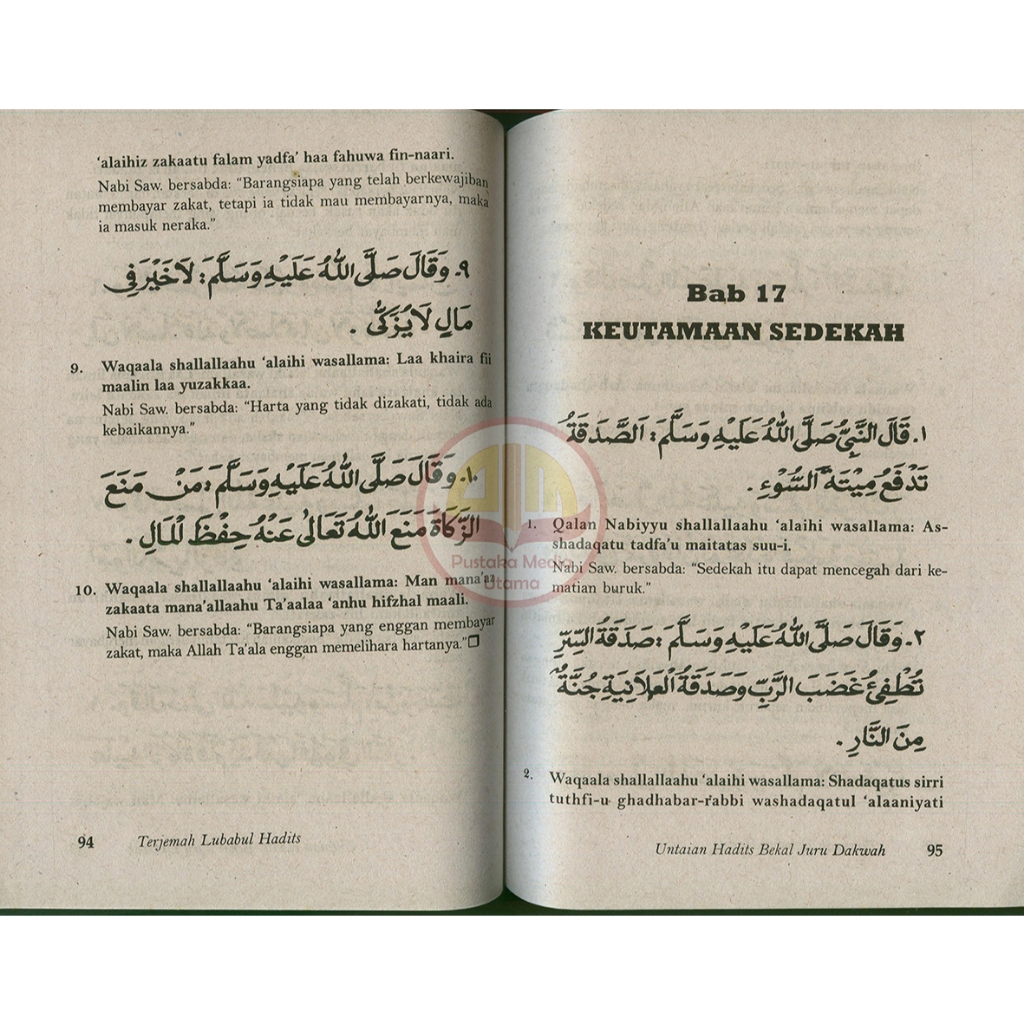 ‘alaihiz zakaatu falam yadfa’ haa fahuwa fin-naari.
Nabi Saw. bersabda: “Barangsiapa yang telah berkewajiban
membayar zakat, tetapi ia tidak mau membayarnya, maka
ia masuk neraka.”
٩. وَقَالَ صَلَّى اللهُ عَلَيْهِ وَسَلَّمَ: لَاخَيْرَ فِى
مَالٍ لَا يُزَكَّى .
9. Waqaala shallallaahu ‘alaihi wasallama: Laa khaira fii
maalin laa yuzakkaa.
Nabi Saw. bersabda: “Harta yang tidak dizakati, tidak ada
kebaikannya.”
١٠. وَقَالَ صَلَّى اللهُ عَلَيْهِ وَسَلَّمَ: مَنْ مَنَعَ
الزَّكَاةَ مَنَعَ اللهُ تَعَالَى عَنْهُ حِفْظَ لْمَالِ .
10. Waqaala shallallaahu ‘alaihi wasallama: Man mana’az
zakaata mana’allaahu Ta’aalaa ‘anhu hifzhal maali.
Nabi Saw. bersabda: “Barangsiapa yang enggan membayar
zakat, maka Allah Ta’ala enggan memelihara hartanya.”❒
94 Terjemah Lubabul Hadits
Bab 17
KEUTAMAAN SEDEKAH
١. قَالَ النَّبِىُّ صَلَّى اللهُ عَلَيْهِ وَسَلَّمَ: اَلصَّدَقَةُ
تَدْفَعُ مِيْتَةَ السُّوْءِ .
1. Qalan Nabiyyu shallallaahu ‘alaihi wasallama: As-
shadaqatu tadfa’u maitatas suu-i.
Nabi Saw. bersabda: “Sedekah itu dapat mencegah dari ke-
matian buruk.”
٢. وَقَالَ صَلَّى اللهُ عَلَيْهِ وَسَلَّمَ: صَدَقَةُ السِّرِّ
تُطْفِئُ غَضَبَ الرَّبِّ وَصَدَقَةُ الْعَلَانِيَةِ جُنَّةٌ
مِنَ النَّارِ .
2. Waqaala shallallaahu ‘alaihi wasallama: Shadaqatus sirri
tuthfi-u ghadhabar-rabbi washadaqatul ‘alaaniyati
Untaian Hadits Bekal Juru Dakwah 95
Pustaka Media
Utama